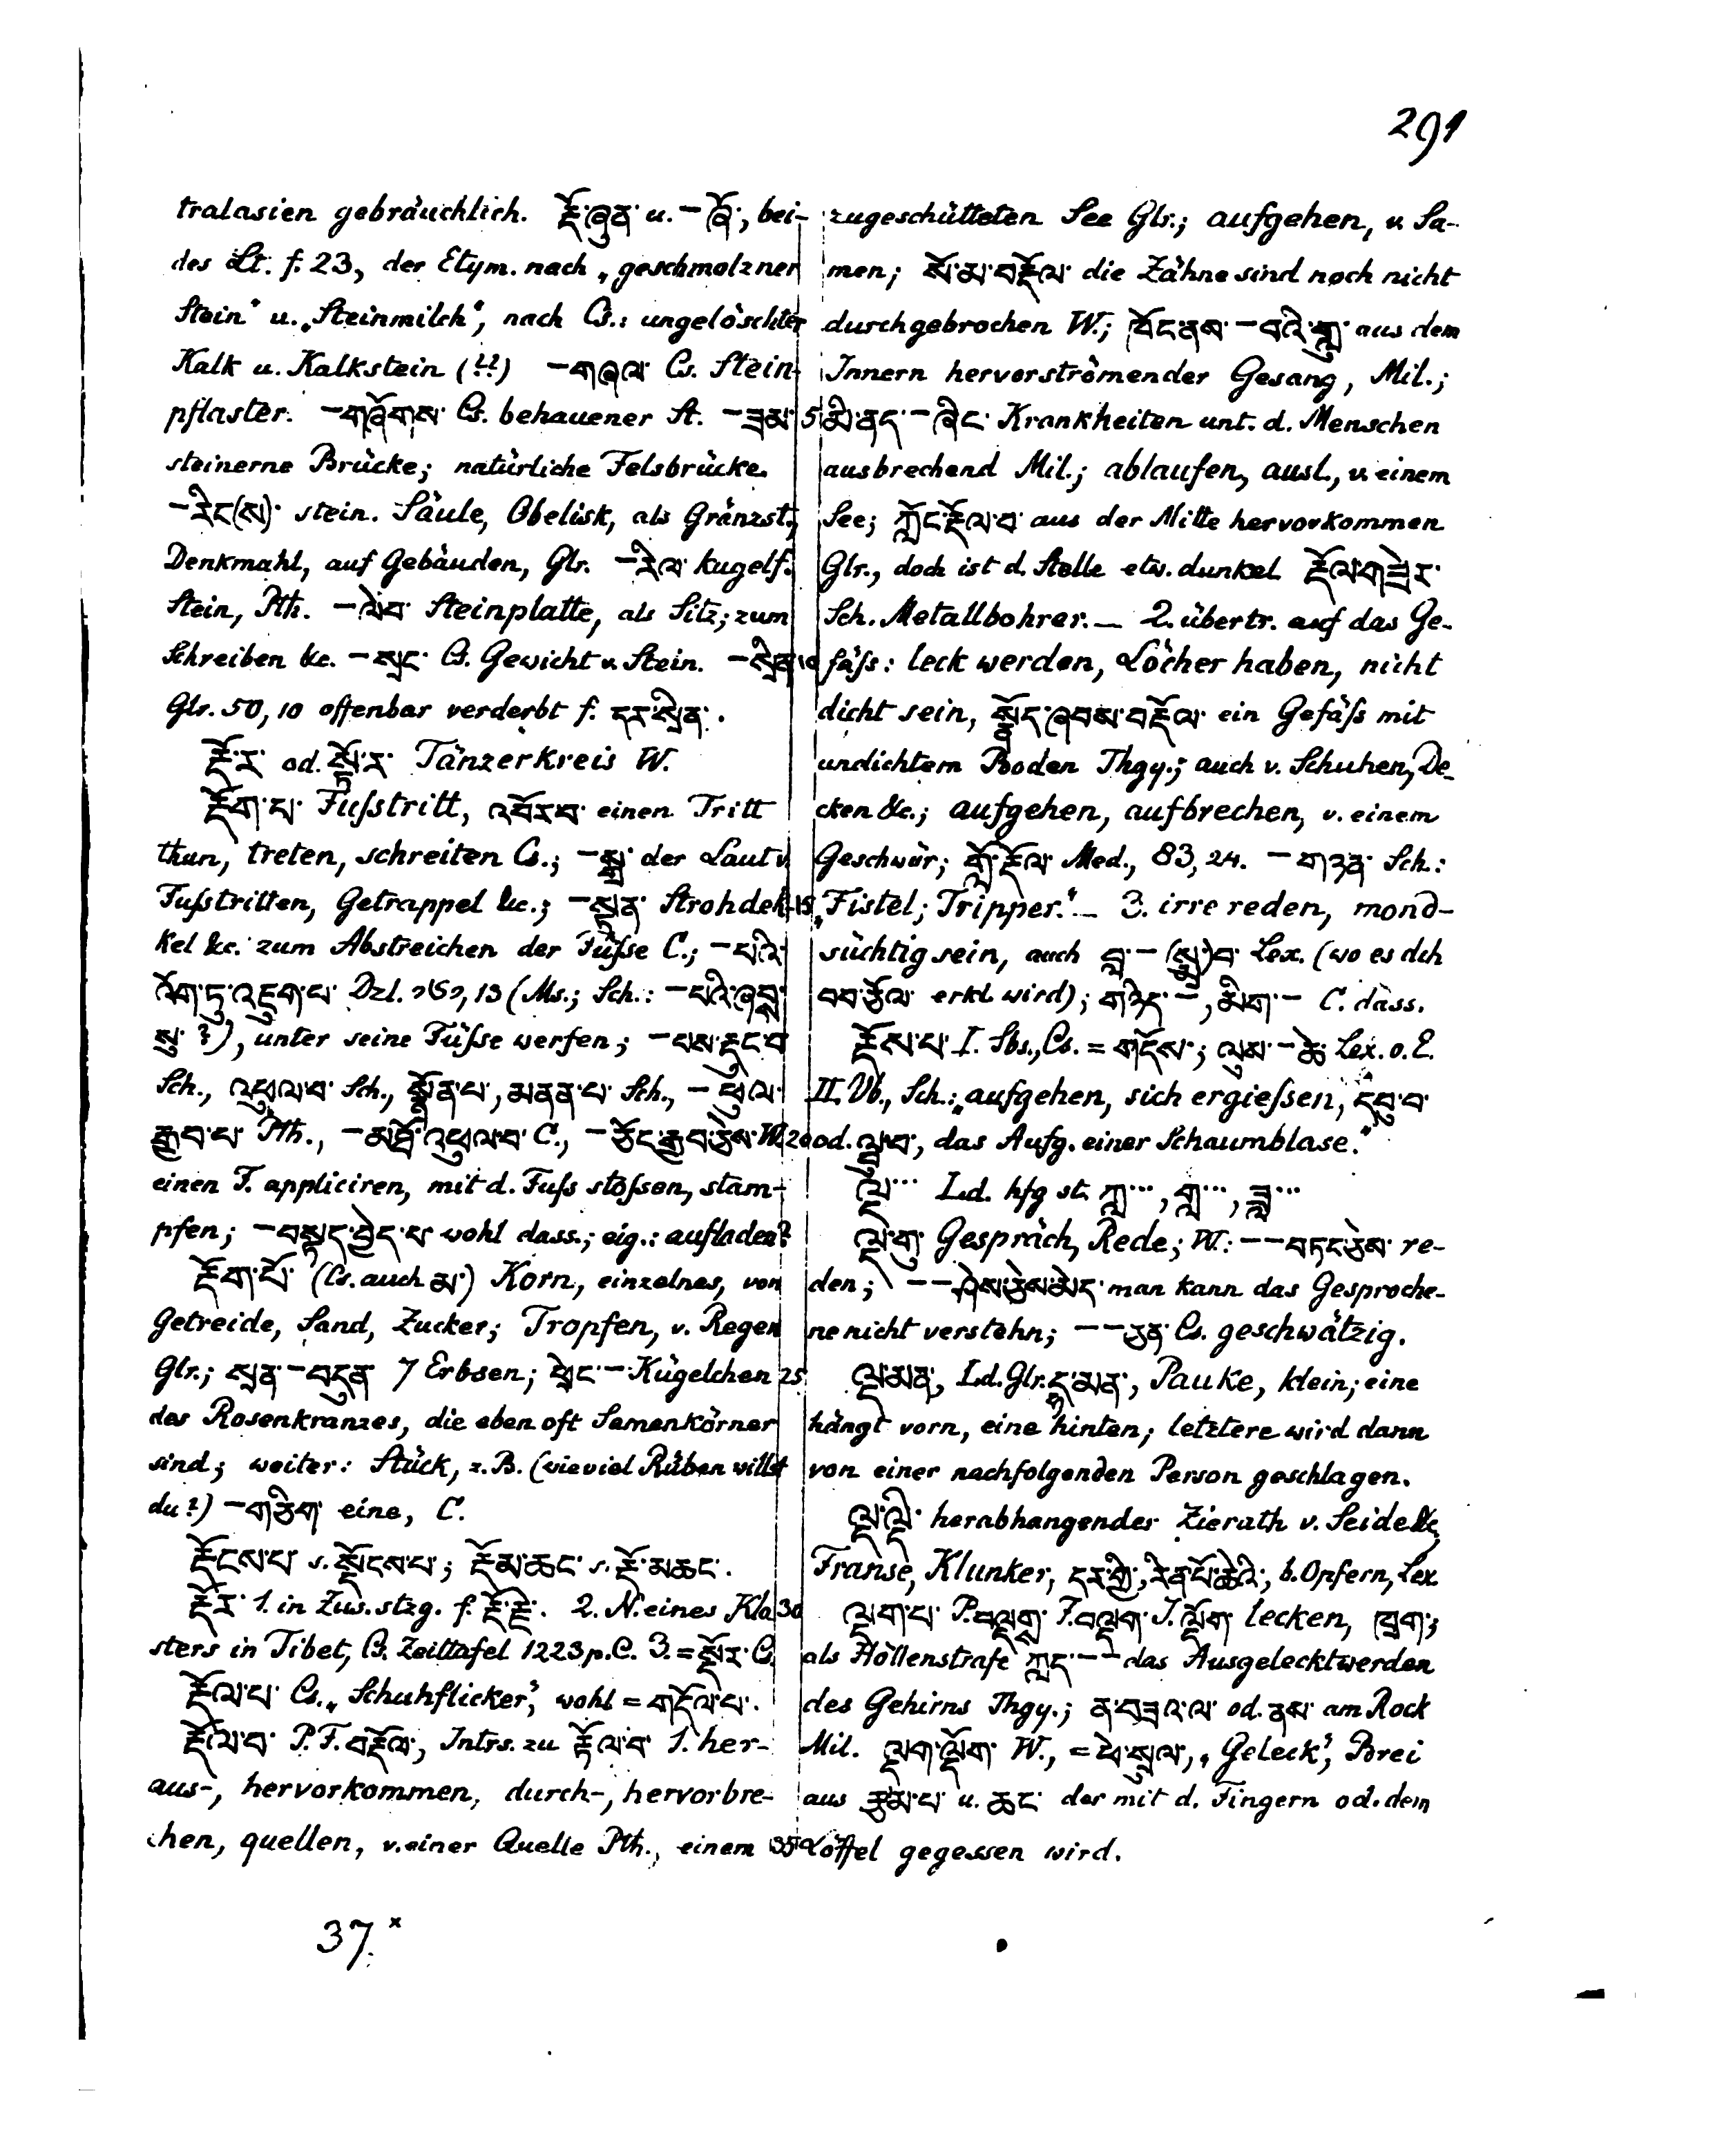 291
tralasien gebräuchlich. རྡོ་ཞུན་ u. – ཞོ་, bei-
des Lt. f. 23, der Etym. nach „geschmolzner
Stein“ u. „Steinmilch“, nach Cs.: ungelöschter
Kalk u. Kalkstein (??) – གཞལ་ Cs. Stein-
pflaster. – གཞོགས་ Cs. behauener St. – ཟམ་
steinerne Brücke; natürliche Felsbrücke.
– རིང(ས)་ stein. Säule, Obelisk, als Gränzst.,
Denkmahl, auf Gebäuden, Glr. – རིལ་ kugelf.
Stein, Pth. – ལེབ་ Steinplatte, als Sitz; zum
Schreiben &c. – སྲང་ Cs. Gewicht v. Stein. – སྲིན་
Glr. 50, 10 offenbar verderbt f. དར་སྲིན་.
རྡོ་ར་ od. སྟོ་ར་ Tänzerkreis W.
རྡོག་པ་ Fußstritt, འབོར་བ་ einen Tritt
thun, treten, schreiten Cs.; – སྒྲ་ der Laut v.
Fußtritten, Getrappel &c.; – སྟན་ Strohdek-
kel &c. zum Abstreichen der Füße C.; – པའི་
འོག་ཏུ་འཇུག་པ་ Dzl. ༢༦༢, 13 (Ms.; Sch.: – པའི་
?), unter seine Füße werfen; – པས་རྡུང་བ་
Sch., འཕུལ་བ་ Sch., སྣོན་པ་, མནན་པ་ Sch., – ཕུལ་
རྒྱབ་པ་ Pth., – མཐོ་འཕུལ་བ་ C., – ཅོང་རྒྱབ་ཅེས་ W.
einen F. appliciren, mit d. Fuss stoßen, stam-
pfen; – བསྟད་བྱེད་པ་ wohl dass.; eig.: aufladen?
རྡོག་པོ་ (Cs. auch མ་) Korn, einzelnes, von
Getreide, Sand, Zucker; Tropfen, v. Regen
Glr.; སྲན་ – བདུན་ 7 Erbsen; ཕྲེང་ – Kügelchen
des Rosenkranzes, die eben oft Samenkörner
sind; weiter: Stück, z. B. (wieviel Rüben willst
du?) – གཅིག་ eine, C.
རྡོངས་པ་ s. སྡོངས་པ་; རྡོམ་ཆང་ s. རྡོ་མཆང་.
རྡོར་ 1. in Zus. stzg. f. རྡོ་རྗེ་. 2. N. eines Klo-
sters in Tibet, Cs. Zeittafel 1223 p. C. 3. = སྡོར་ C.
རྡོལ་པ་ Cs. „Schuhflicker“, wohl = གདོལ་པ་.
རྡོལ་བ་ P. F. བརྡོལ་, Intrs. zu རྟོལ་བ་ 1. her-
aus-, hervorkommen, durch-, hervorbre-
chen, quellen, v. einer Quelle Pth., einem
zugeschütteten See Glr.; aufgehen, v. Sa-
men; སོ་མ་བརྡོལ་ die Zähne sind noch nicht
durchgebrochen W.; ཁོང་ནས་ – བའི་གླུ་ aus dem
Innern hervorströmender Gesang, Mil.;
5 མི་ནད་ – ཞིང་ Krankheiten unt. d. Menschen
ausbrechend Mil.; ablaufen, ausl., v. einem
See; ཀློང་རྡོལ་བ་ aus der Mitte hervorkommen
Glr., doch ist d. Stelle etw. dunkel. རྡོལ་གཟེར་
Sch. Metallbohrer. — 2. übertr. auf das Ge-
10 fäß: leck werden, Löcher haben, nicht
dicht sein, སྣོད་ཞབས་བརྡོལ་ ein Gefäß mit
undichtem Boden Thgy.; auch v. Schuhen, De-
cken &c.; aufgehen, aufbrechen, v. einem
Geschwür; གློ་རྡོལ་ Med., 83, 24. – གཉན་ Sch.:
15 „Fistel; Tripper.“ — 3. irre reden, mond-
süchtig sein, auch བླ་ – (སླ་)བ་ Lex. (wo es dch
བབ་ཅོལ་ erkl. wird); གཉིད་ –, མིག་ – C. dass.
རྡོས་པ་ I. Sbs., Cs. = གདོས་; ལུས་ – ཆེ་ Lex. o. E.
II. Vb., Sch.: „aufgehen, sich ergießen,
20 od. , das Aufg. einer Schaumblase.“
ལྡ … Ld. hfg st. ཀླ…, གླ…, ཟླ…
ལྡ་གུ་ Gespräch, Rede; W.: – – བཏང་ཅེས་ re-
den; – – ཤེས་ཅེས་མེད་ man kann das Gesproche-
ne nicht verstehn; – – ཅན་ Cs. geschwätzig.
25 ལྡ་མན་, Ld. Glr. ད་མན་, Pauke, klein; eine
hängt vorn, eine hinten; letztere wird dann
von einer nachfolgenden Person geschlagen.
ལྡ་ལྡི་ herabhangender Zierath v. Seide &c,
Franse, Klunker, དར་གྱི་, རིན་པོ་ཆེའི་, b. Opfern, Lex.
30 ལྡག་པ་ P. བལྡགས་ F. བལྡག་ J. ལྡོག་ lecken, ཁྲག་;
als Höllenstrafe ཀླད་ – – das Ausgelecktwerden
des Gehirns Thgy.; ན་བཟའ་ལ་ od. ནས་ am Rock
Mil. ལྡག་ལྡོག་ W., = ཕྱེ་སྲུལ་, „Geleck“, Brei
aus རྩམ་པ་ u. ཆང་ der mit d. Fingern od. dem
35 Löffel gegessen wird.
37.ˣ